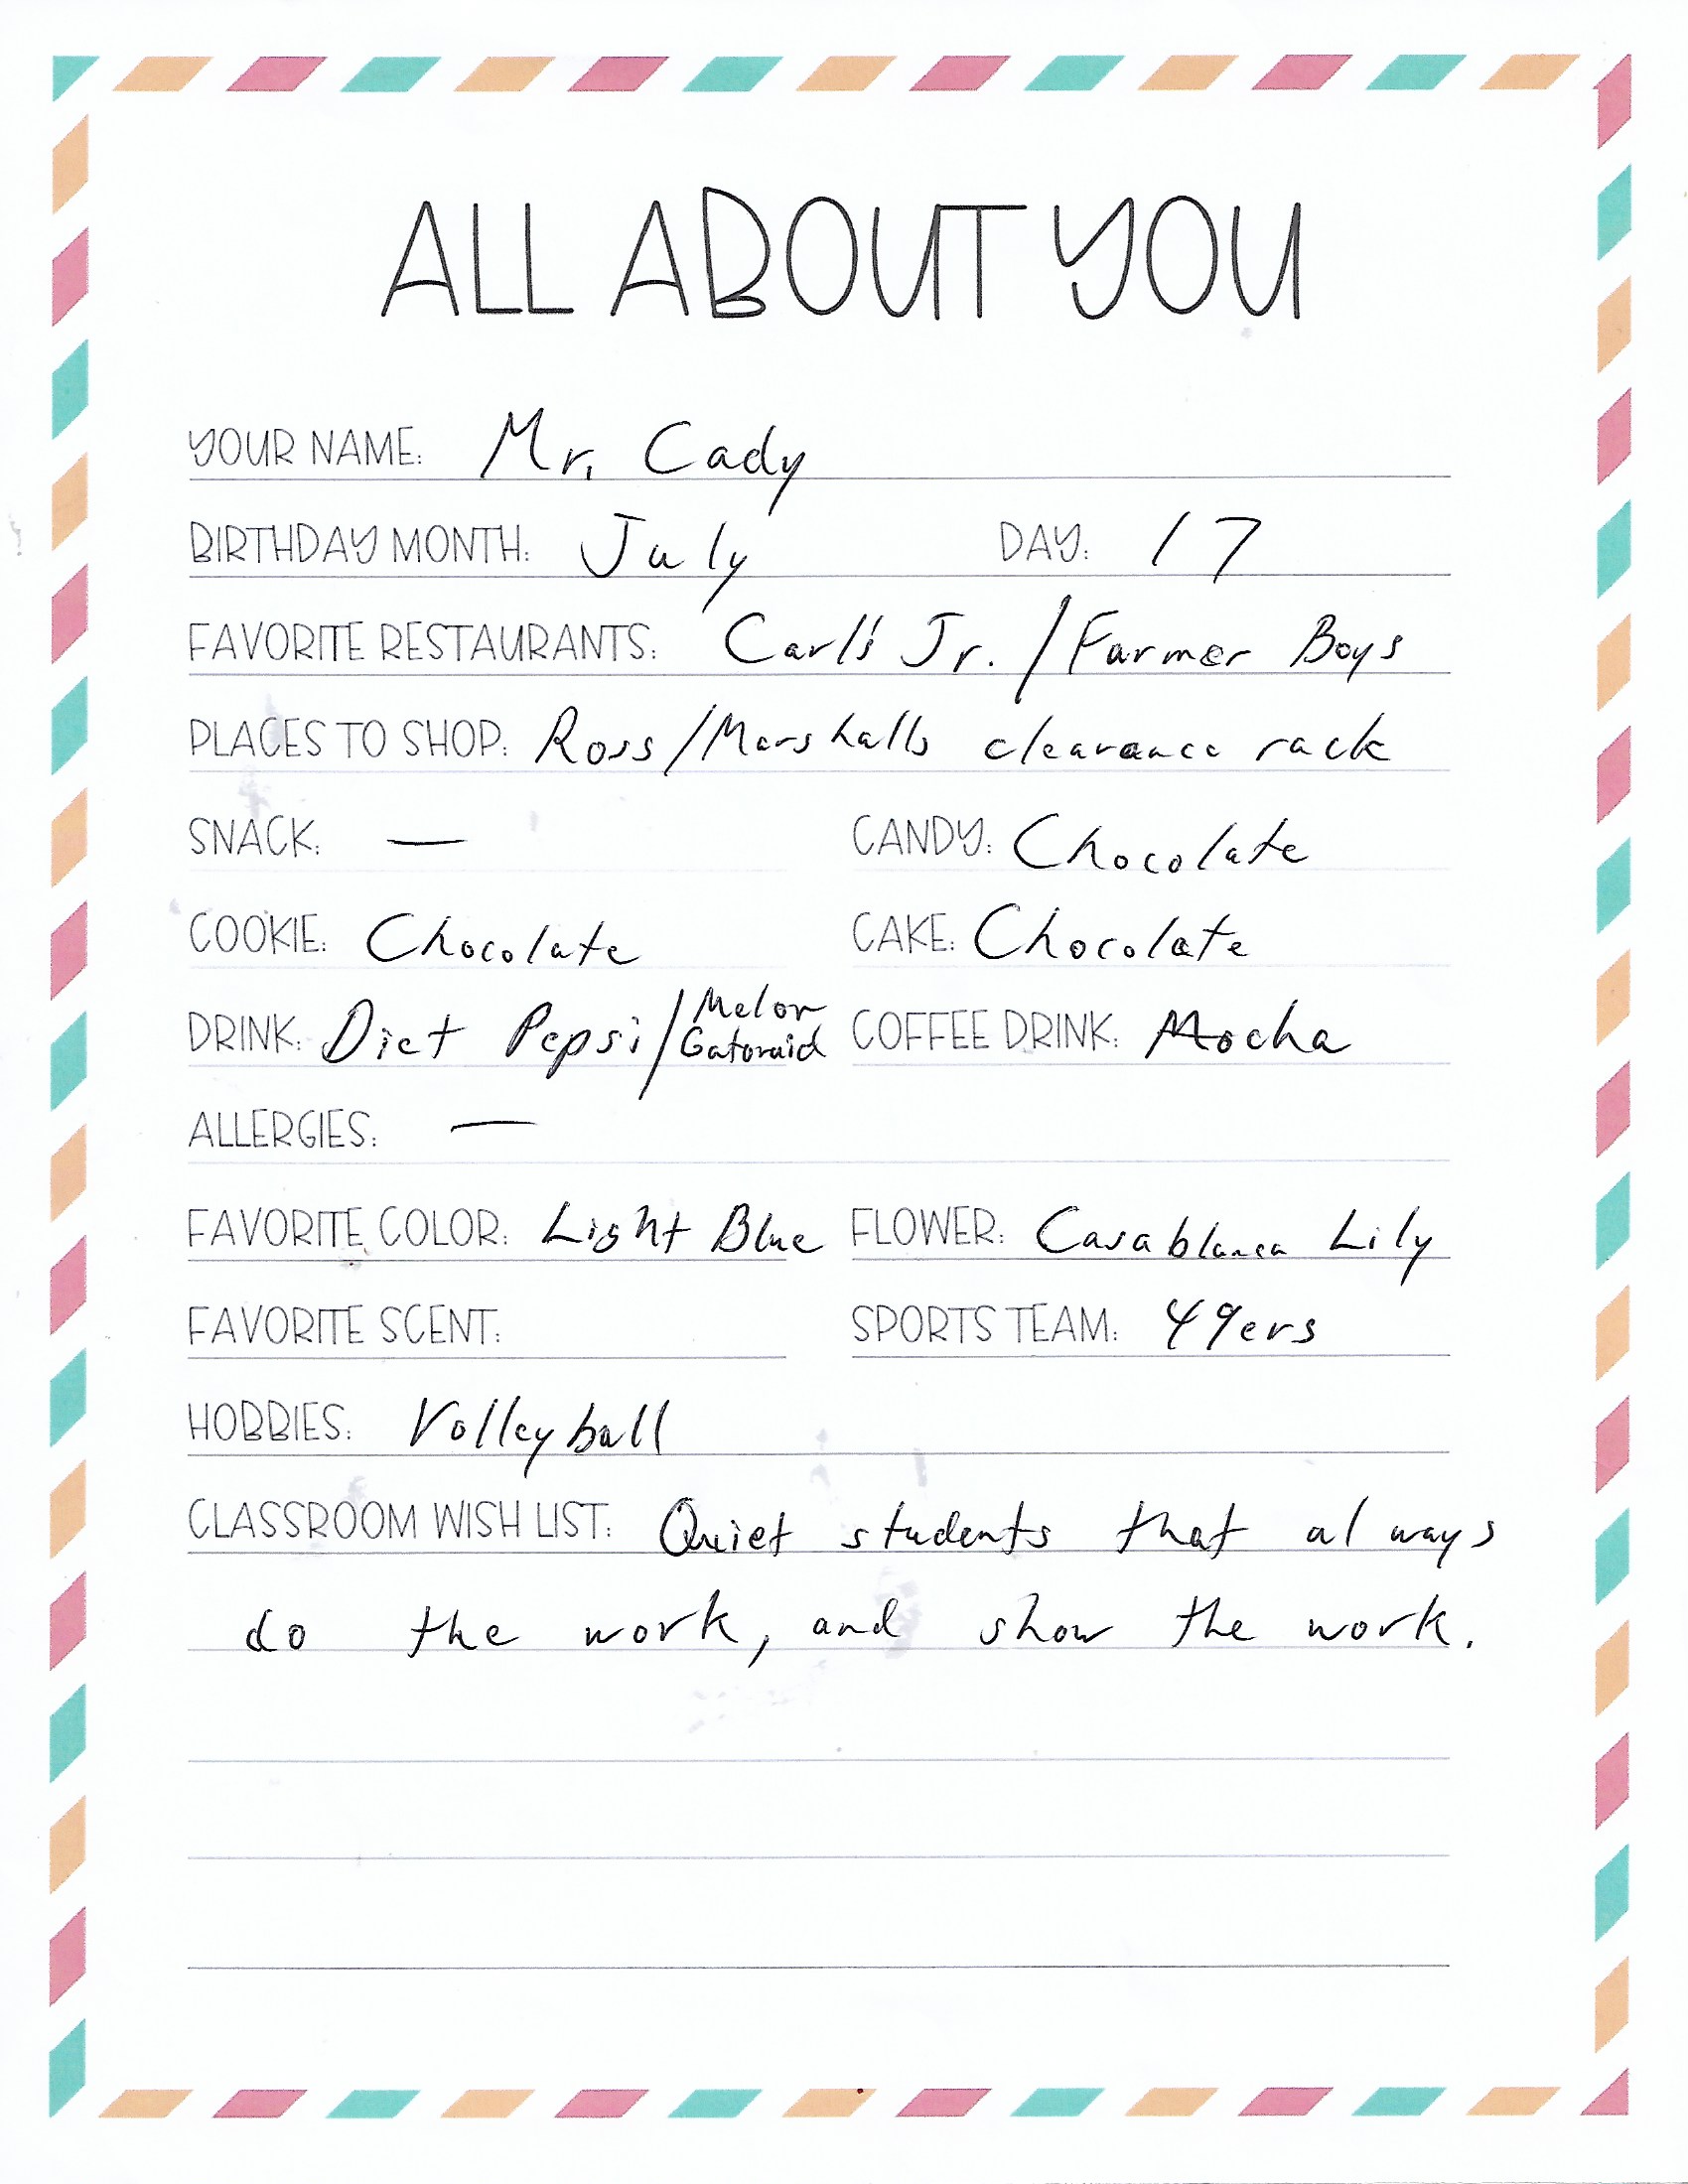 ALL ABOUT YOU
YOUR NAME: Mr. Cady
BIRTHDAY MONTH: July DAY: 17
FAVORITE RESTAURANTS: Carl's Jr. / Farmer Boys
PLACES TO SHOP: Ross / Marshalls clearance rack
SNACK: — CANDY: Chocolate
COOKIE: Chocolate CAKE: Chocolate
DRINK: Diet Pepsi / Melon Gatoraid COFFEE DRINK: Mocha
ALLERGIES: —
FAVORITE COLOR: Light Blue FLOWER: Casablanca Lily
FAVORITE SCENT: SPORTS TEAM: 49ers
HOBBIES: Volleyball
CLASSROOM WISH LIST: Quiet students that always
do the work, and show the work.